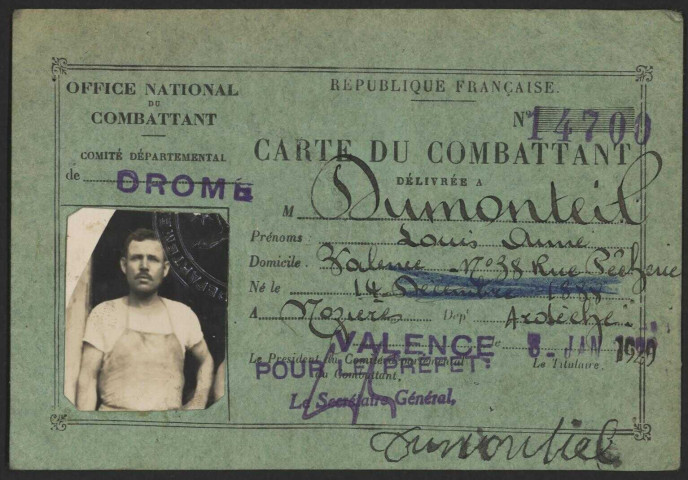 OFFICE NATIONAL
DU
COMBATTANT
COMITÉ DÉPARTEMENTAL
de DROME
RÉPUBLIQUE FRANÇAISE.
N° 14700
CARTE DU COMBATTANT
DÉLIVRÉE A
M Dumonteil
Prénoms : Louis Anne
Domicile : Valence N° 38 Rue
Né le 14 Décembre
A Nozieres Dep' Ardèche
VALENCE le 8 - JAN 1929
Le Président du Comité départemental
du Combattant,
POUR LE PRÉFET
Le Secrétaire Général,
Le Titulaire,